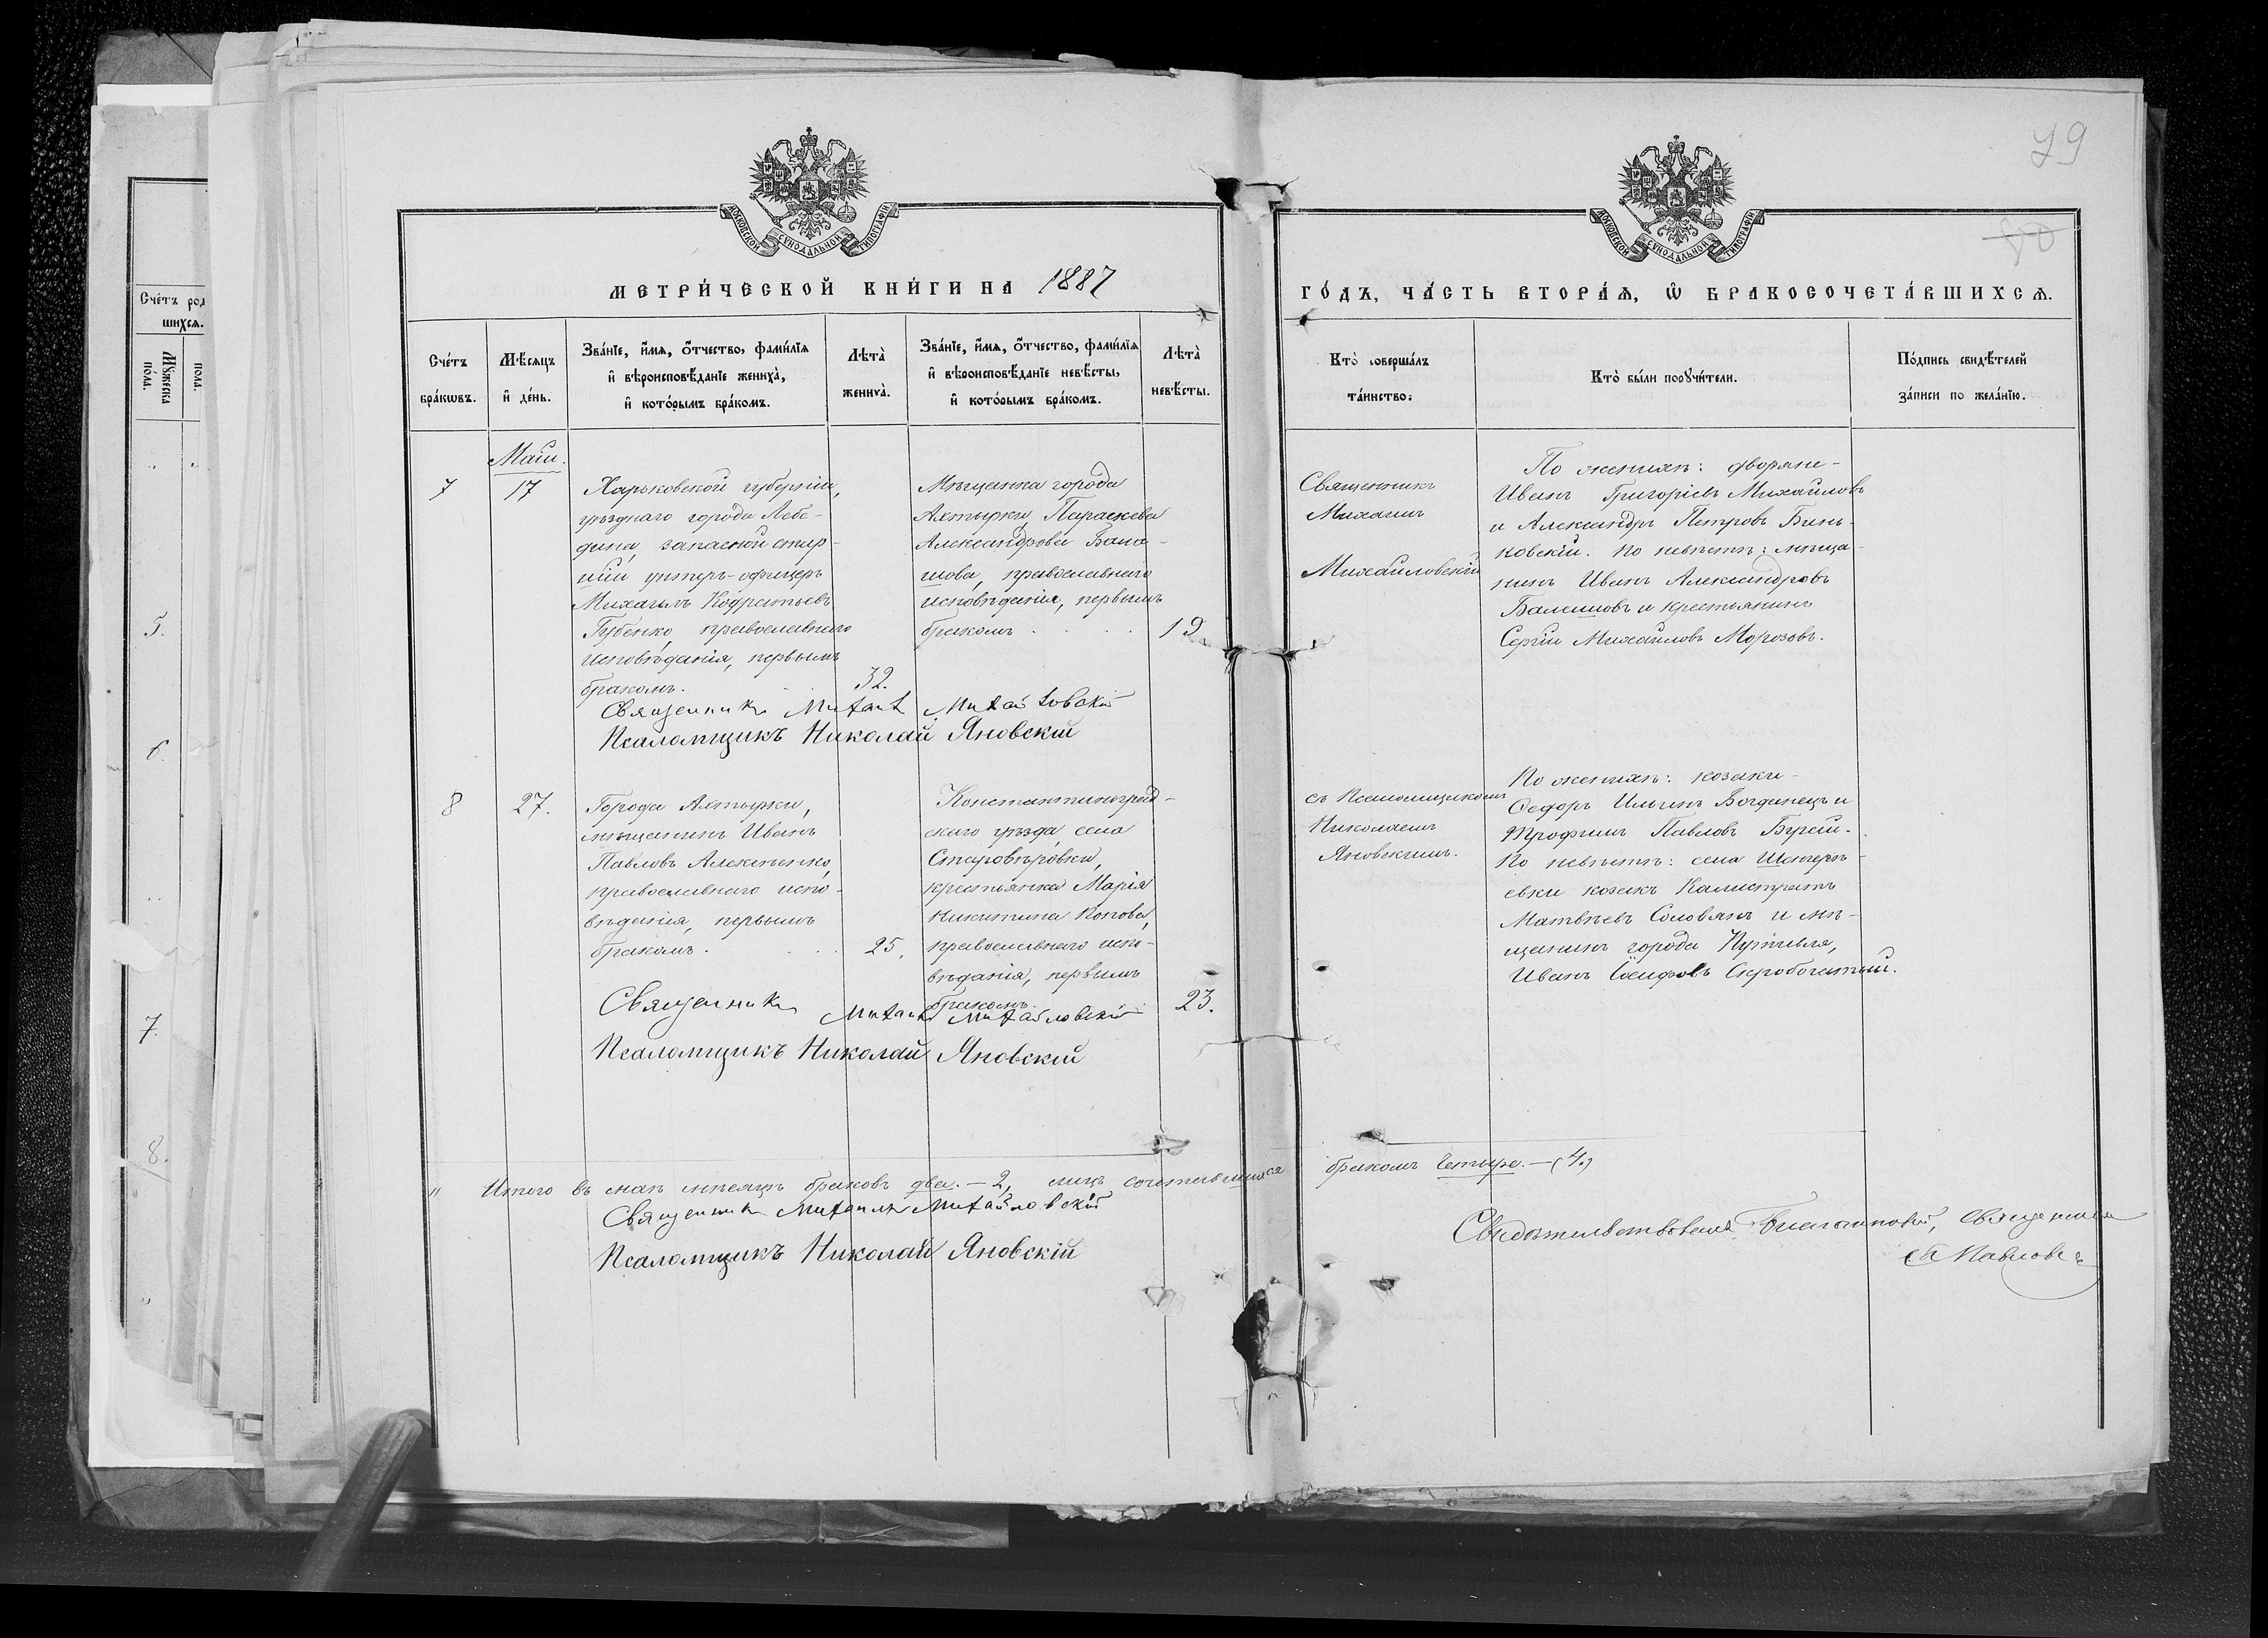 79
80
МОСКОВСКОЙ СѴНОДАЛЬНОЙ ТИПОГРАФІИ
МОСКОВСКОЙ СѴНОДАЛЬНОЙ ТИПОГРАФІИ
МЕТРИ́ЧЕСКОЙ КНИ́ГИ НА 1887
ГО́ДЪ, ЧА́СТЬ ВТОРА́Ѧ, Ѽ БРАКОСОЧЕТА́ВШИХСѦ.
Сче́тъ бра́кѡвъ.
Мѣ́сѧцъ и҆ де́нь.
Зва́нїе, и҆́мѧ, о҆́тчество, фами́лїѧ
и҆ вѣроисповѣ́данїе жениха̀,
и҆ кото́рымъ бра́комъ.
Лѣта̀ жениха̀.
Зва́нїе, и҆́мѧ, о҆́тчество, фами́лїѧ
и҆ вѣроисповѣ́данїе невѣ́сты,
и҆ кото́рымъ бра́комъ.
Лѣта̀ невѣ́сты.
Кто̀ соверша́лъ
та́инство.
Кто̀ бы́ли порꙋчи́тели.
По́дпись свидѣ́телей
за́писи по жела́нїю.
Маій.
7
17
Харьковской губерніи,
уѣзднаго города Лебе-
дина, запасной стар-
шій унтеръ-офицеръ
Михаилъ Кодратьевъ
Губенко, православнаго
исповѣданія, первымъ
бракомъ.
32.
Мѣщанка города
Ахтырки, Параскева
Александрова Бала-
шова, православнаго
исповѣданія, первымъ
бракомъ
19
Священникъ
Михаилъ
Михайловскій
По женихѣ: дворяне-
Иванъ Григоріевъ Михайловъ
и Александръ Петровъ Бинь-
ковскій. По невѣстѣ: мѣща-
нинъ Иванъ Александровъ
Балашовъ и крестьянинъ
Сергій Михайловъ Морозовъ.
Священникъ Михаилъ Михайловскій
Псаломщикъ Николай Яновскій
8
27.
Города Ахтырки,
мѣщанинъ Иванъ
Павловъ Алексѣенко,
православнаго испо-
вѣданія, первымъ
бракомъ.
25.
Константиноград-
скаго уѣзда, села
Старовѣровки,
крестьянка Марія
Никитина Попова,
православнаго испо-
вѣданія, первымъ
бракомъ.
23.
съ Псаломщикомъ
Николаемъ
Яновскимъ.
По женихѣ: козаки-
Ѳедоръ Ильинъ Богданецъ и
Трофимъ Павловъ
По невѣстѣ: села
евки козакъ Калистратъ
Матвѣевъ Соловянъ и мѣ-
щанинъ города Путивля,
Иванъ Іосифовъ Скробогатый.
Священникъ Михаилъ Михайловскій
Псаломщикъ Николай Яновскій
Итого въ маѣ мѣсяцѣ браковъ два.—2, лицъ сочетавшихся бракомъ четыре.—(4.)
Священникъ Михаилъ Михайловскій
Псаломщикъ Николай Яновскій
Свидѣтельствовалъ Благочинный, священникъ
Павловъ
Сче́тъ
шихсѧ.
Мꙋ́жеска
по́ла.
пола.
5.
6.
7.
8.